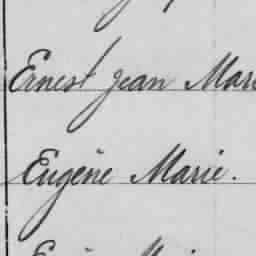 Ernest Jean Mari
Eugène Marie.